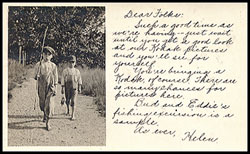 Dear Folks:
Such a good time as
we're having – just wait
until you get a good look
at our Kodak pictures
and you'll see for
yourself.
You're bringing a
Kodak, of course. There are
so many chances for
pictures here.
Bud and Eddie's
fishing excursion is a
sample.
As ever,
Helen